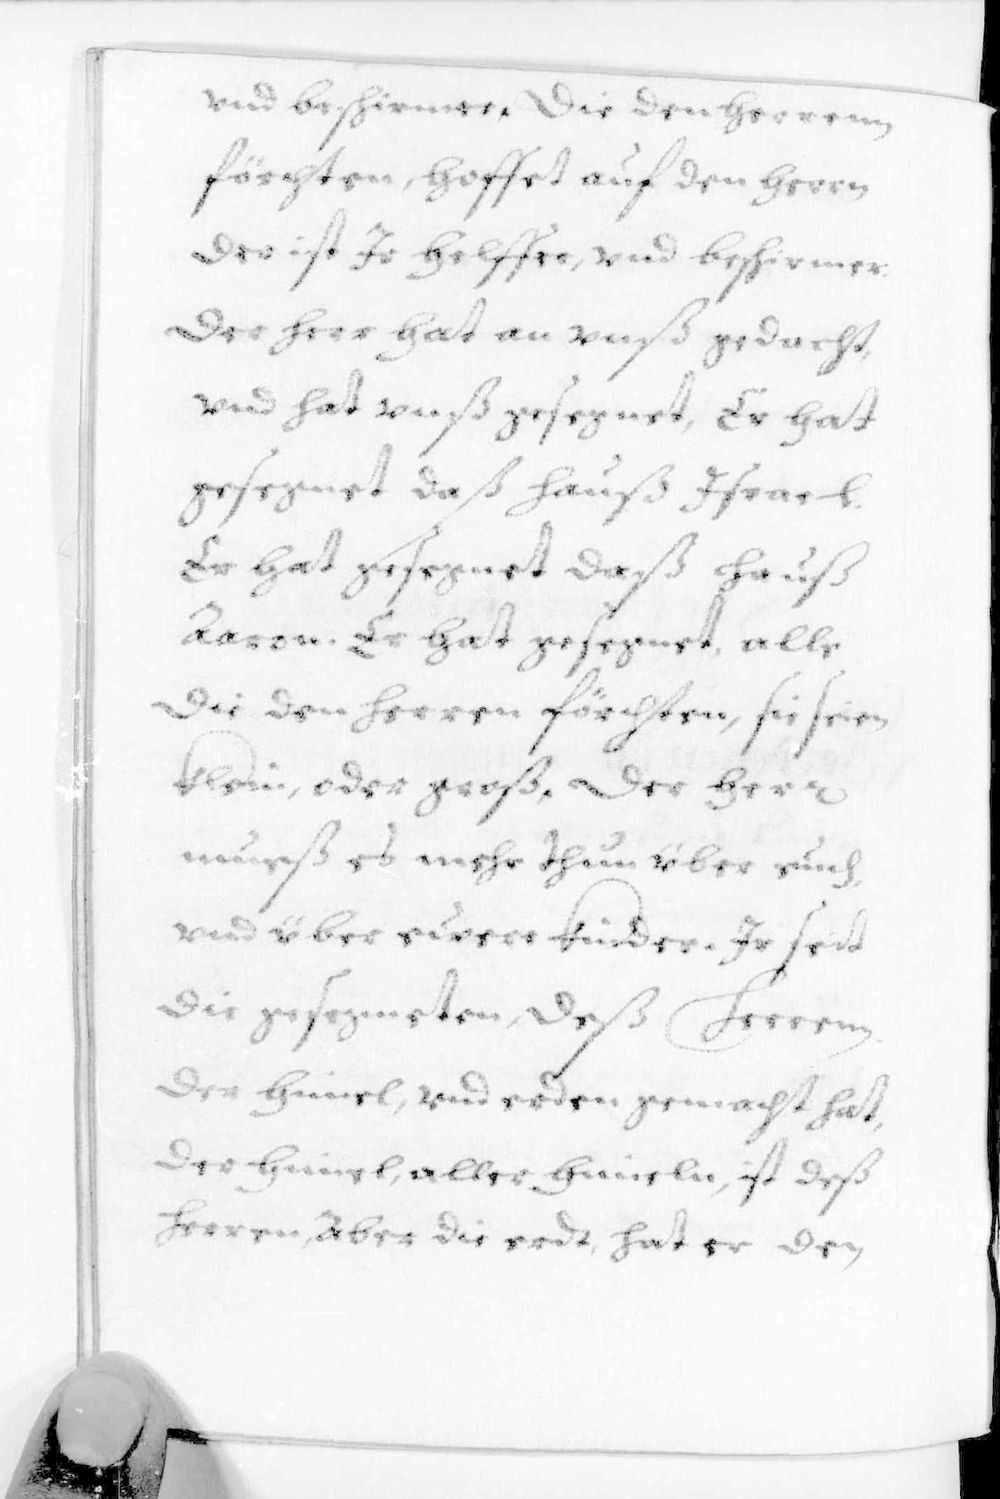 vnd beschirmer. Die den Herrenn
förchten, hoffet auf den herrn
der ist Jr helffer, vnd beschirmer.
Der herr hat an vnß gedacht,
vnd hat vnß gesegnet, Er hat
gesegnet daß hauß Israel.
Er hat gesegnet daß hauß
Aaron. Er hat gesegnet, alle
die den herren förchten, sie seien
klein, oder groß. Der herr
es mehr thun über euch,
vnd über euere kinder. Jr seit
die gesegneten, deß Herrenn
der himel, vnd erden gemacht hat,
der himel, aller himeln, ist deß
herren, Aber die erdt, hat er den